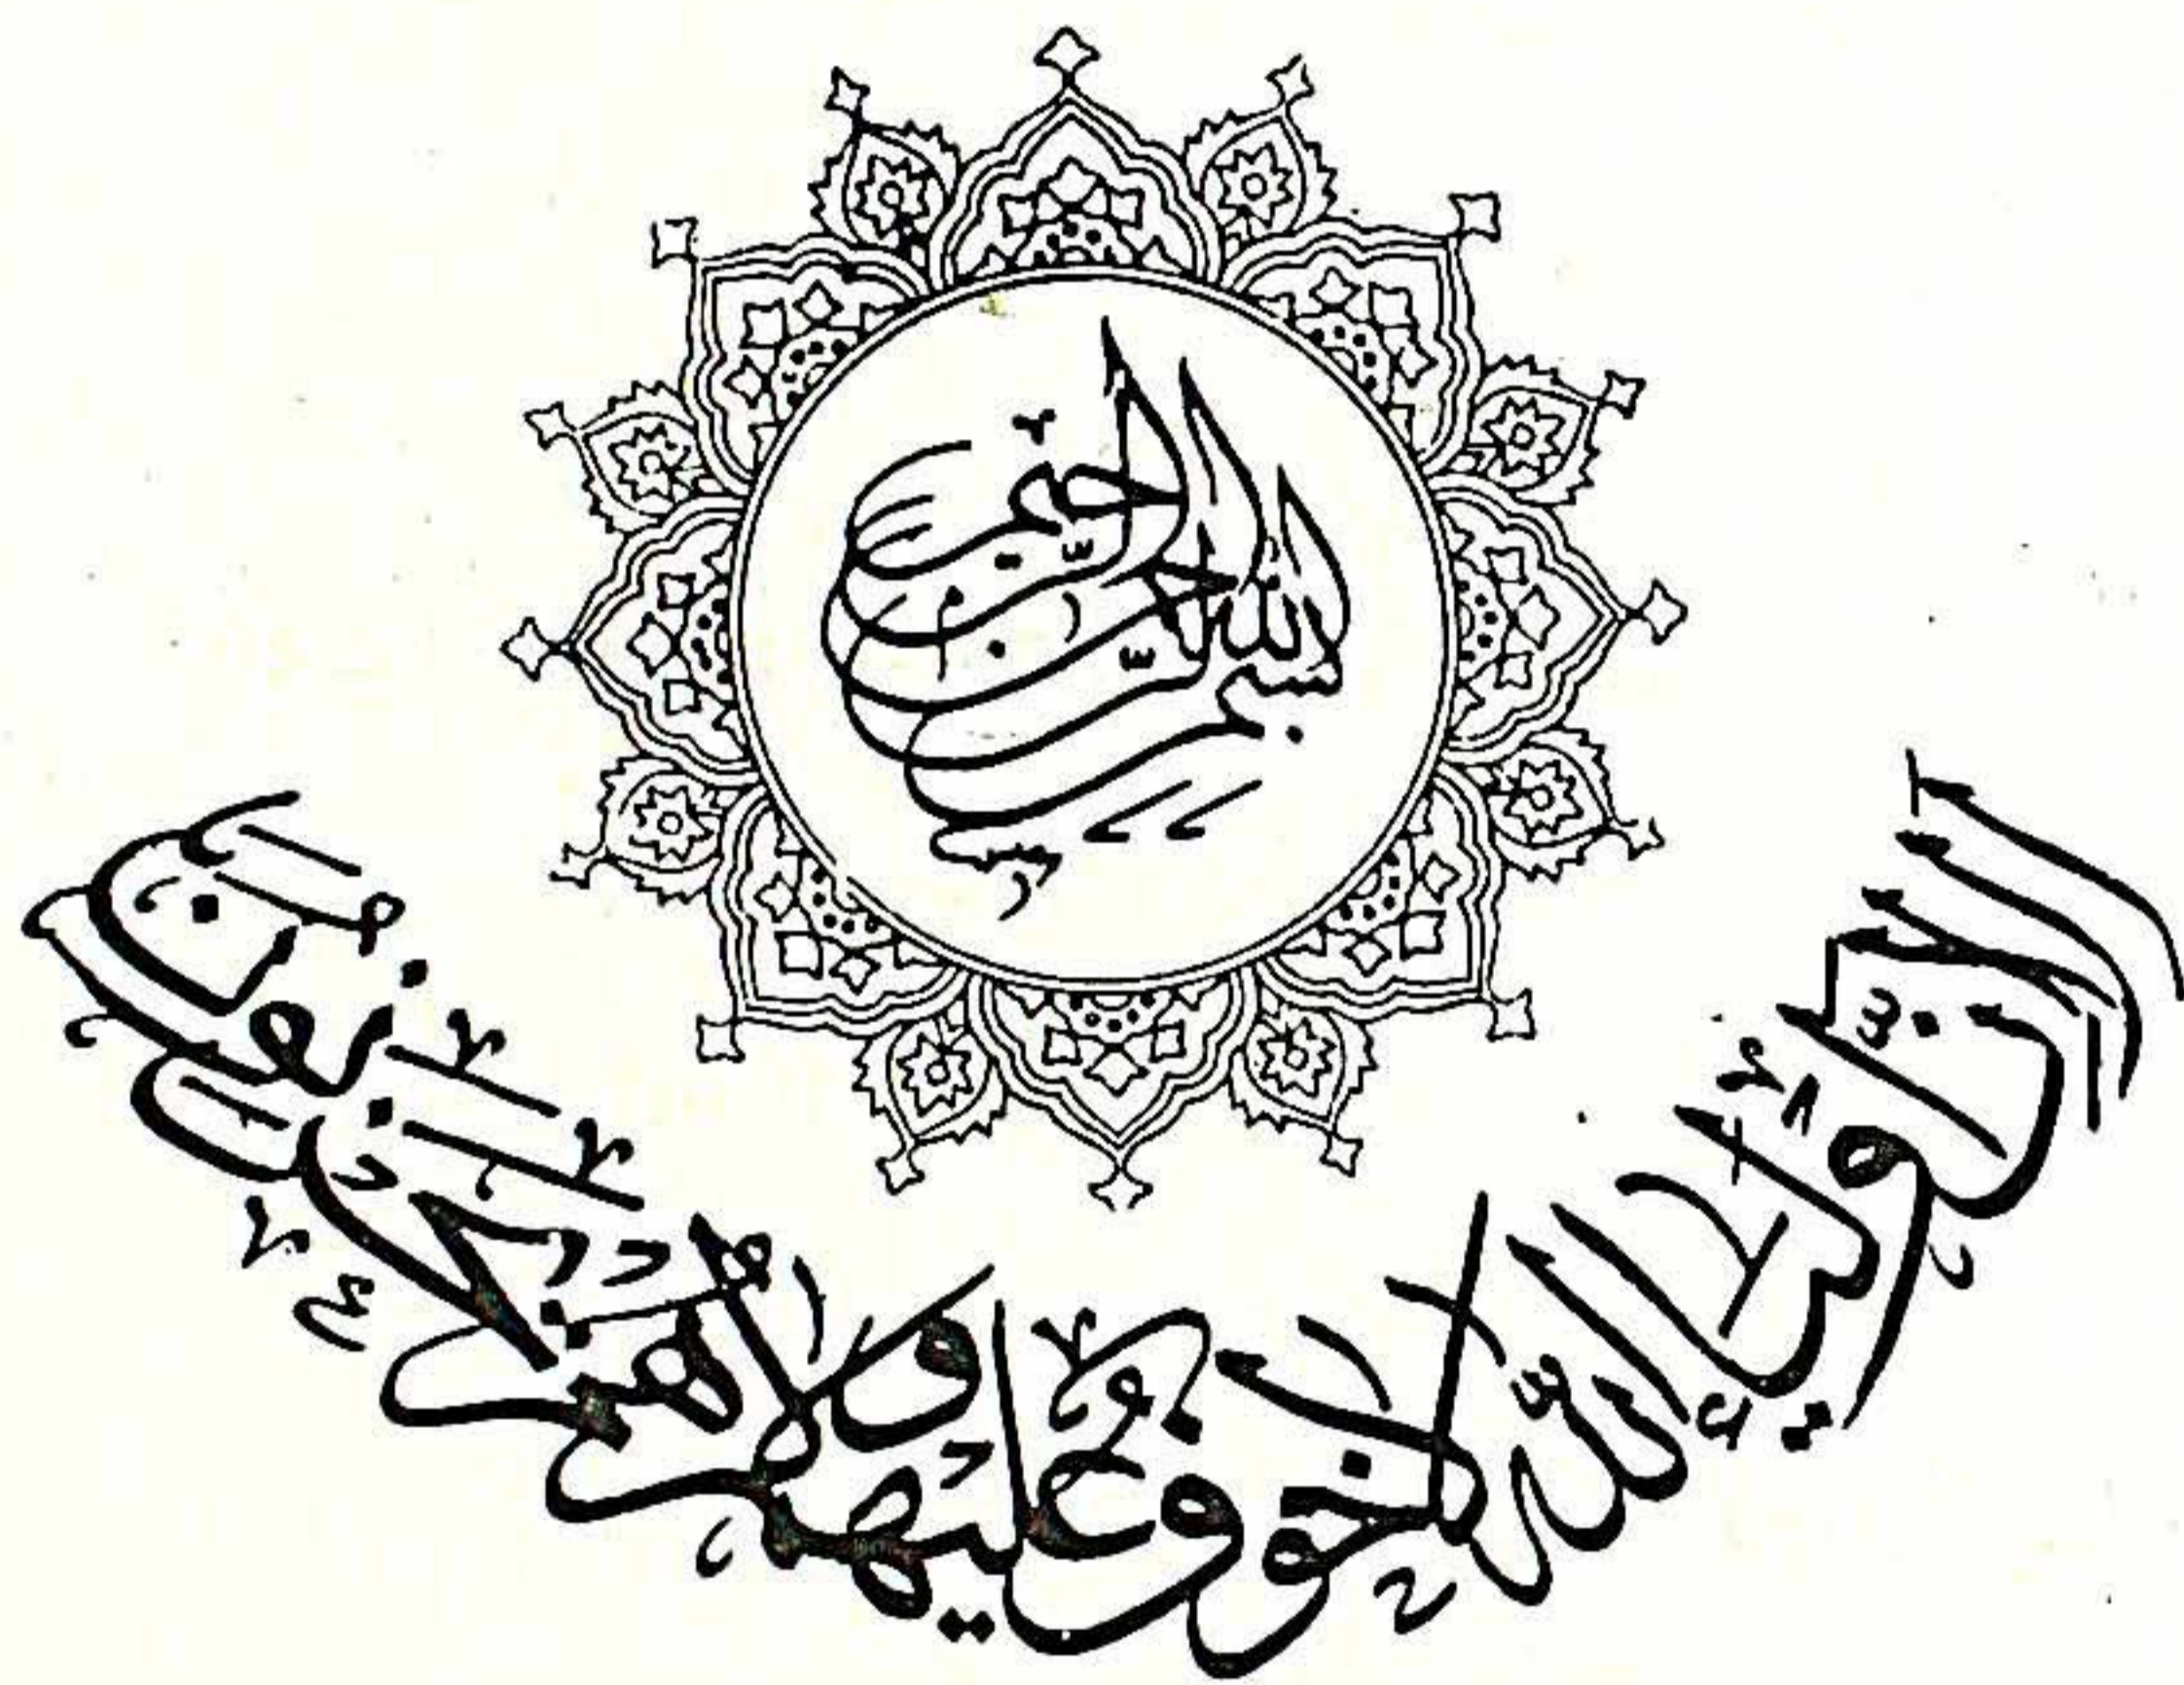 بسم الله الرحمن الرحيم
الا ان اولياء الله لا خوف عليهم ولا هم يحزنون